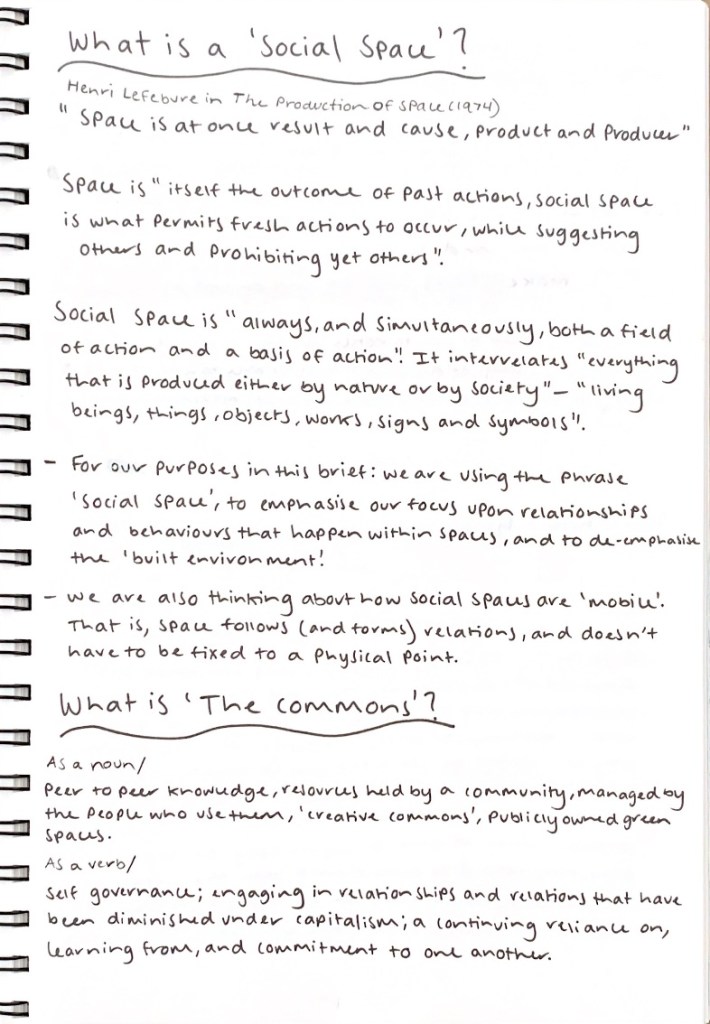 What is a 'Social Space'?
Henri Lefebvre in The Production of Space (1974)
" Space is at once result and cause, product and producer"
Space is " itself the outcome of past actions, social space
is what permits fresh actions to occur, while suggesting
others and prohibiting yet others".
Social space is " always, and simultaneously, both a field
of action and a basis of action". It interrelates "everything
that is produced either by nature or by society" – "living
beings, things, objects, works, signs and symbols".
- For our purposes in this brief: we are using the phrase
'social space', to emphasise our focus upon relationships
and behaviours that happen within spaces, and to de-emphasise
the 'built environment'.
- We are also thinking about how social spaces are 'mobile'.
That is, space follows (and forms) relations, and doesn't
have to be fixed to a physical point.
What is 'The Commons'?
As a noun/
Peer to peer knowledge, resources held by a community, managed by
the people who use them, 'creative commons', publicly owned green
spaces.
As a verb/
Self governance; engaging in relationships and relations that have
been diminished under capitalism; a continuing reliance on,
learning from, and commitment to one another.